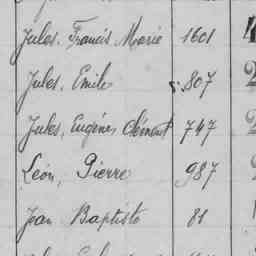 Jules, Francis Marie 1601
Jules, Emile 807
Jules, Eugénes Clément 747
Léon, Pierre 987
Jean Baptiste 81